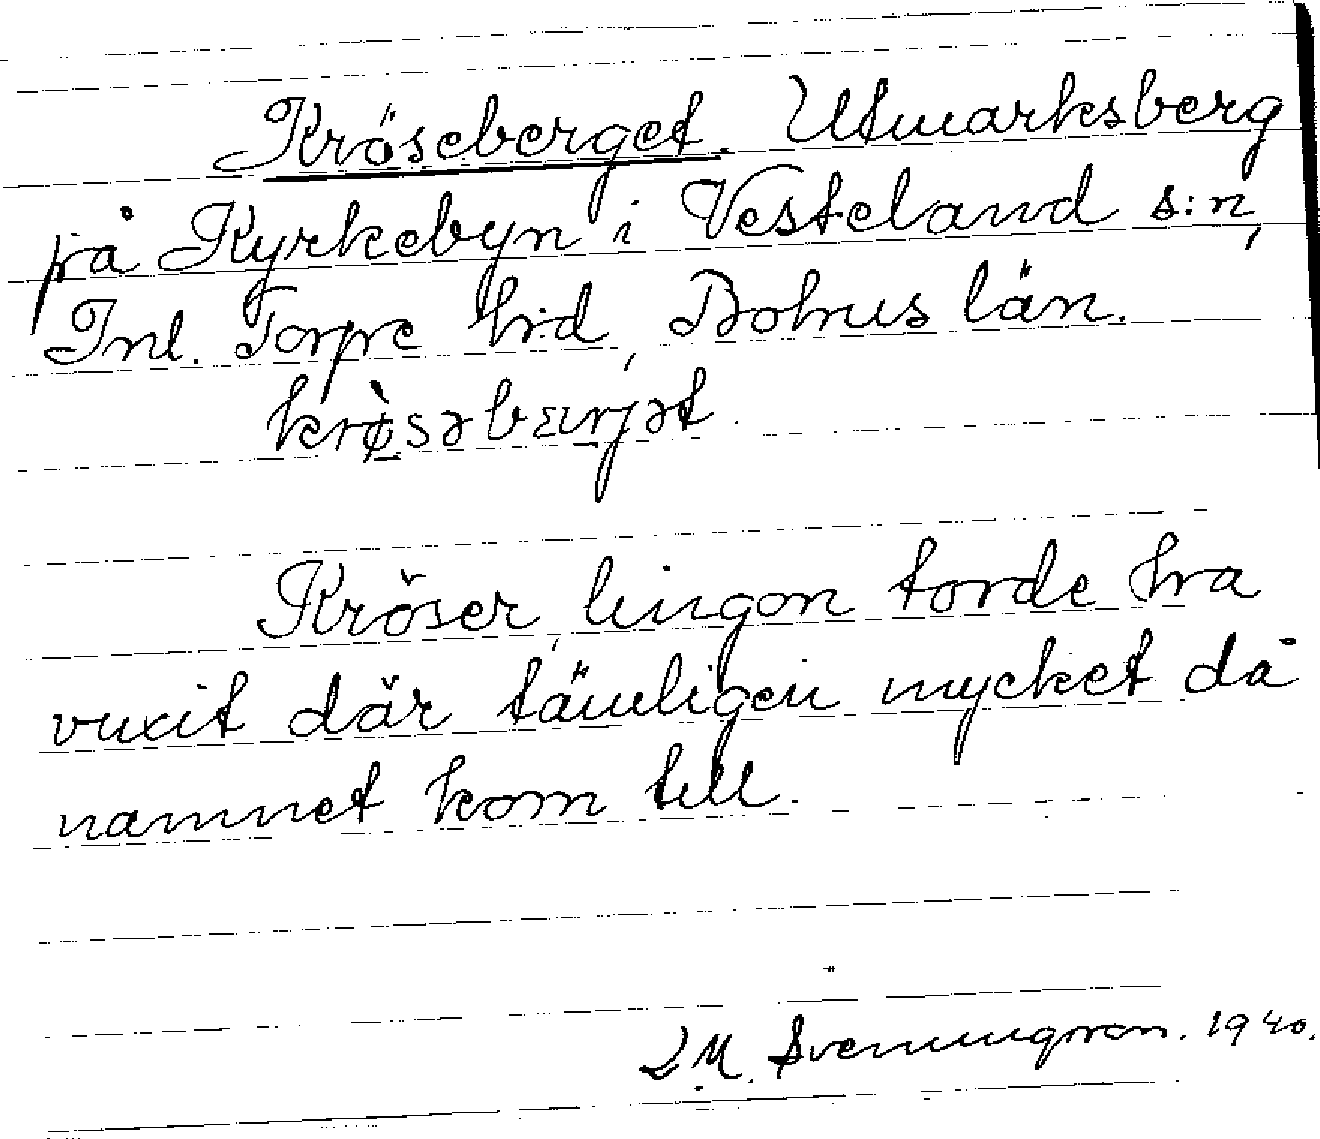 Kröseberget. Utmarksberg
på Kyrkebyn i Vesteland s:n,
Inl. Torpe h:d, Bohus län.
krø̀səbærjət.
Kröser, lingon torde ha
vuxit där tämligen mycket då
namnet kom till.
L M. Svenungsson. 1940.